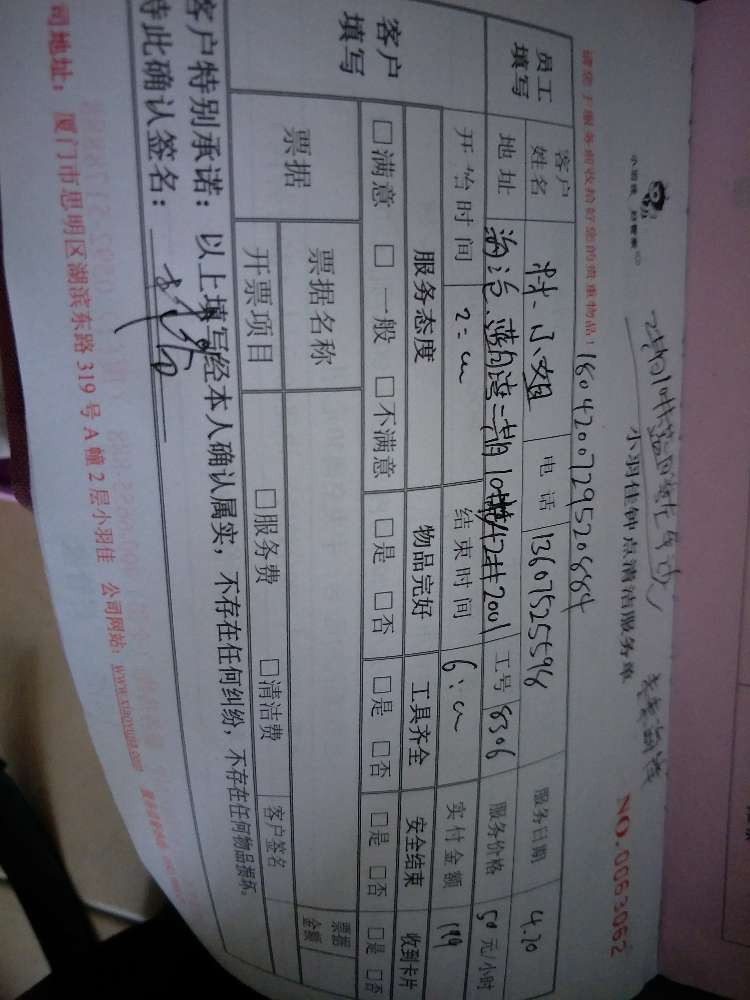 小羽佳 好管家
小羽佳钟点清洁服务单
NO.0053062
请您于服务前收拾好您的贵重物品! 1804200729520884
员工填写 客户姓名 林小姐 电话 13607525598 服务日期 4.20
地址 二期10 42#2001 工号 8306 服务价格 50元/小时
开始时间 2: 结束时间 6: 实付金额 199
客户填写 服务态度 物品完好 工具齐全 安全结束 收到卡片
□满意 □一般 □不满意 □是 □否 □是 □否 □是 □否 □是 □否
票据 票据名称 票据金额
开票项目 □服务费 □清洁费 客户签名
客户特别承诺:以上填写经本人确认属实,不存在任何纠纷,不存在任何物品损坏。
特此确认签名:
司地址: 厦门市思明区湖滨东路319号A幢2层小羽佳 公司网站:www.xiaoyujia.com